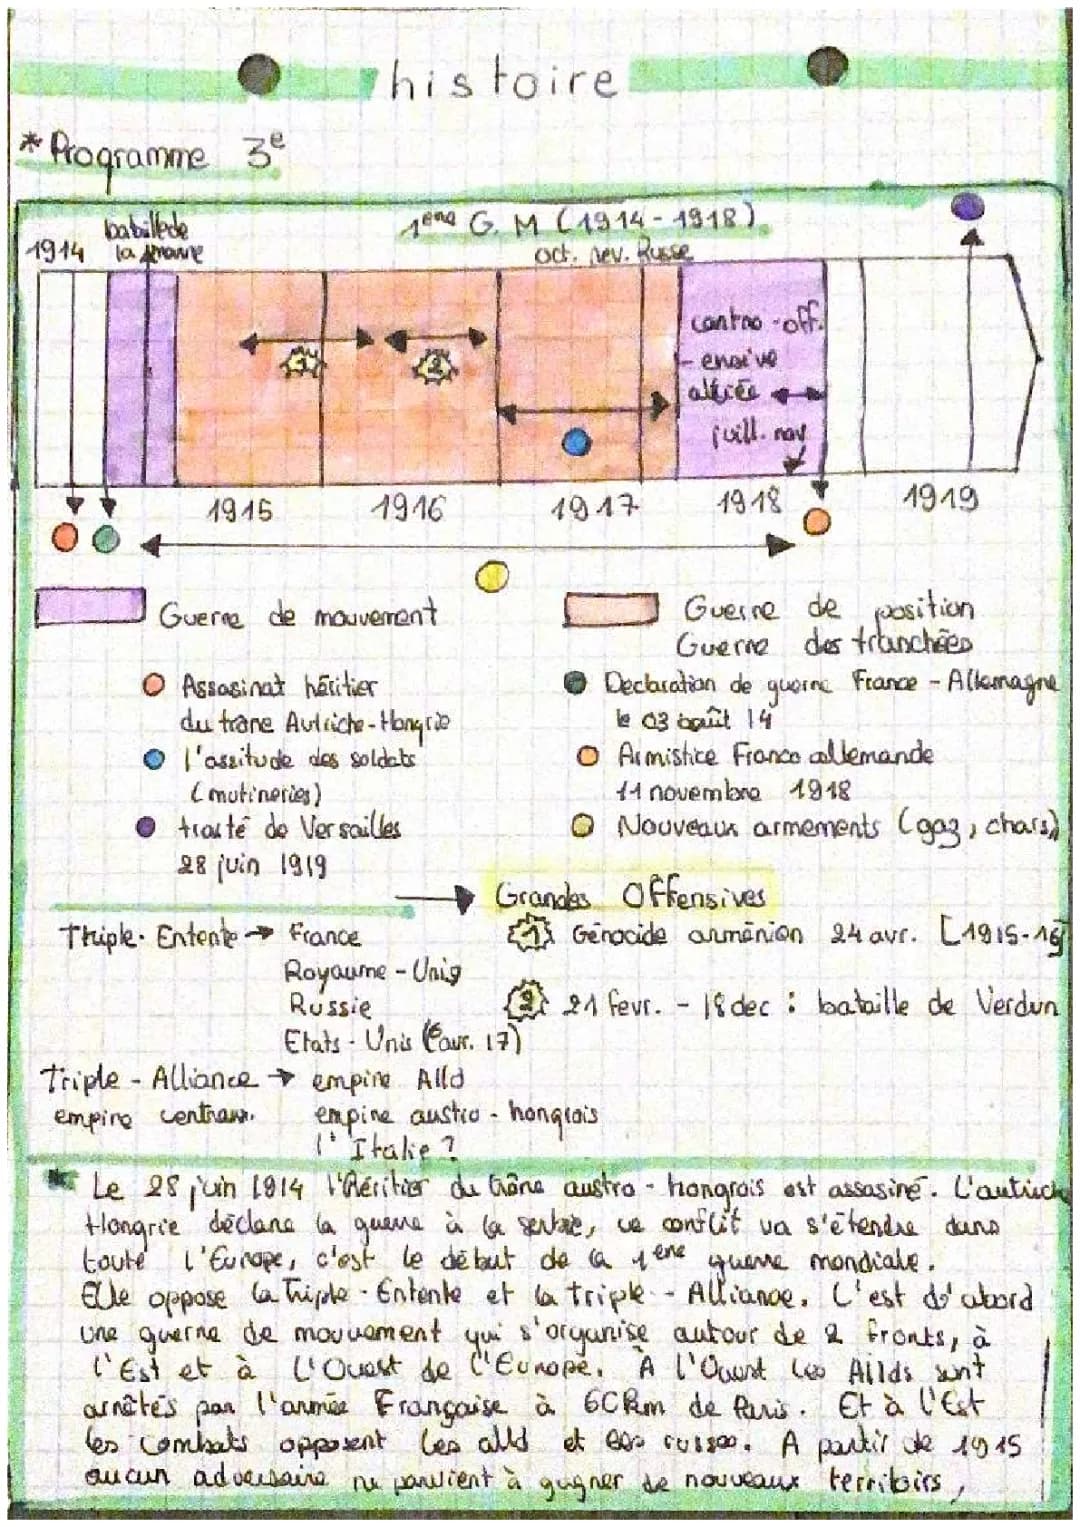 histoire
* Programme 3e
1ère G. M (1914-1918)
bataille de
1914 la Marne
oct. rev. Russe
contre-off.
-ensive
alliée
juill. nov
1
2
1915 1916 1917 1918 1919
Guerre de mouvement
Guerre de position
Guerre des tranchées
Assasinat héritier
du trône Autriche-Hongrie
Declaration de guerre France - Allemagne
le 03 août 14
l'assitude des soldats
(mutineries)
Armistice Franco allemande
11 novembre 1918
traité de Versailles
28 juin 1919
Nouveaux armements (gaz, chars)
→ Grandes Offensives
Triple-Entente → France
Royaume-Unis
Russie
Etats-Unis (6 avr. 17)
1 Génocide arménien 24 avr. [1915-16]
2 21 fevr. - 18 dec : bataille de Verdun
Triple-Alliance → empire Alld
empire centraux. empire austro-hongrois
l'Italie ?
* Le 28 juin 1914 l'Héritier du trône austro-hongrois est assasiné. L'autriche
Hongrie déclare la guerre à la serbie, ce conflit va s'étendre dans
toute l'Europe, c'est le début de la 1ère guerre mondiale.
Elle oppose la Triple-Entente et la triple-Alliance. C'est d'abord
une guerre de mouvement qui s'organise autour de 2 fronts, à
l'Est et à l'Ouest de l'Europe. A l'Ouest les Allds sont
arrêtés par l'armée Française à 60km de Paris. Et à l'Est
les combats opposent les alld et les russes. A partir de 1915
aucun adversaire ne parvient à gagner de nouveaux territoirs,